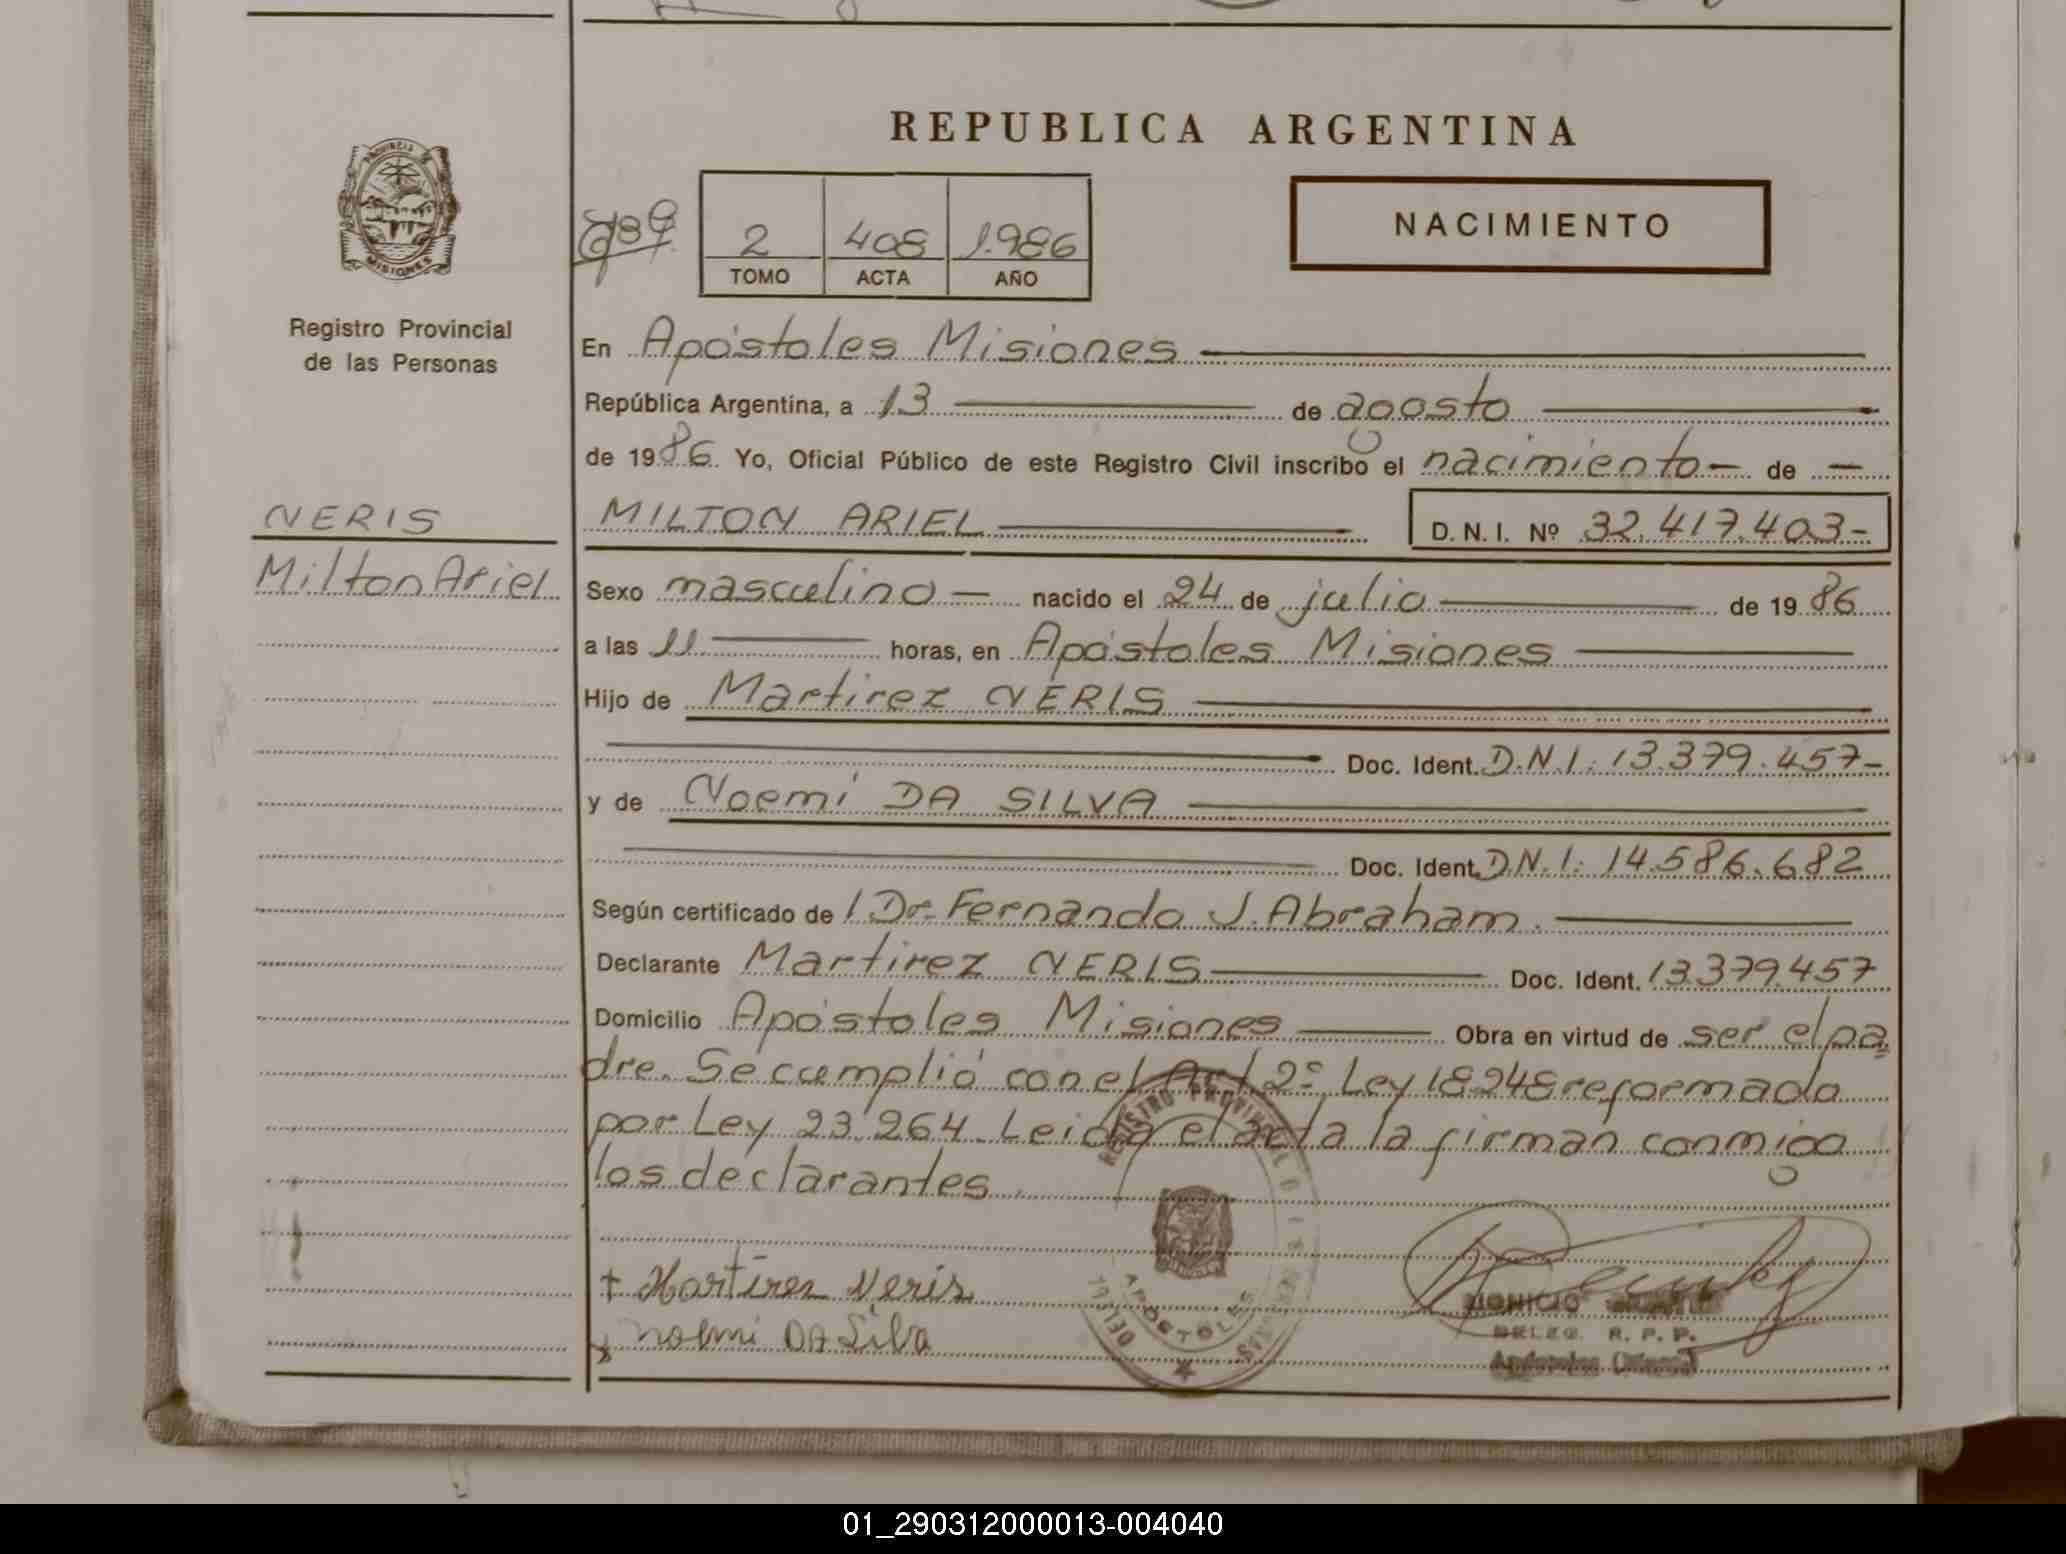 REPUBLICA ARGENTINA
PROVINCIA DE
MISIONES
Registro Provincial
de las Personas
2 408 1.986
TOMO ACTA AÑO
NACIMIENTO
En Apóstoles Misiones
República Argentina, a 13 de agosto
de 1986. Yo, Oficial Público de este Registro Civil inscribo el nacimiento de
NERIS
MILTON ARIEL D. N. I. Nº 32.417.403-
Milton Ariel
Sexo masculino nacido el 24 de julio de 1986
a las 11 horas, en Apóstoles Misiones
Hijo de Martirez NERIS
Doc. Ident. D.N.I. 13.379.457-
y de Noemí DA SILVA
Doc. Ident. D.N.I. 14.586.682
Según certificado de Dr. Fernando J. Abraham.
Declarante Martirez NERIS Doc. Ident. 13.379.457
Domicilio Apóstoles Misiones Obra en virtud de ser el pa
dre. Se cumplió con el Art. 2º Ley 18248 reformada
por Ley 23.264. Leida el acta la firman conmigo
los declarantes.
Martirez Neris
Noemi DA Silva
REGISTRO PROVINCIAL DE LAS PERSONAS
APOSTOLES
DELEG. R. P. P.
01_290312000013-004040